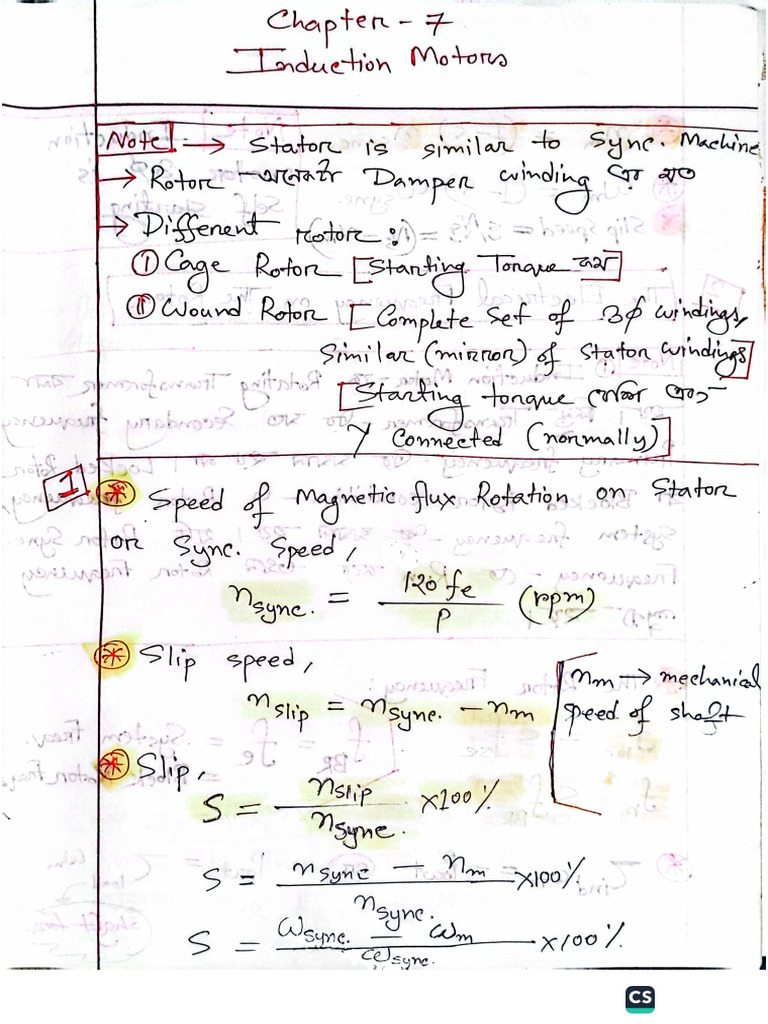 Chapter - 7
Induction Motors
Note → Stator is similar to Sync. Machine
→ Rotor অনেকটা Damper winding এর মত
→ Different rotor:
① Cage Rotor [Starting Torque কম]
② Wound Rotor [Complete set of 3φ windings,
Similar (mirror) of Stator windings]
[Starting torque বেশি এবং
Y Connected (normally)]
1. * Speed of Magnetic flux Rotation on Stator
or Sync. Speed,
n_sync. = 120 fe / P (rpm)
* Slip speed,
n_slip = n_sync. - n_m [n_m → mechanical
speed of shaft
* Slip,
S = n_slip / n_sync. ×100%
S = n_sync - n_m / n_sync. ×100%
S = ω_sync. - ω_m / ω_sync. ×100%
CS